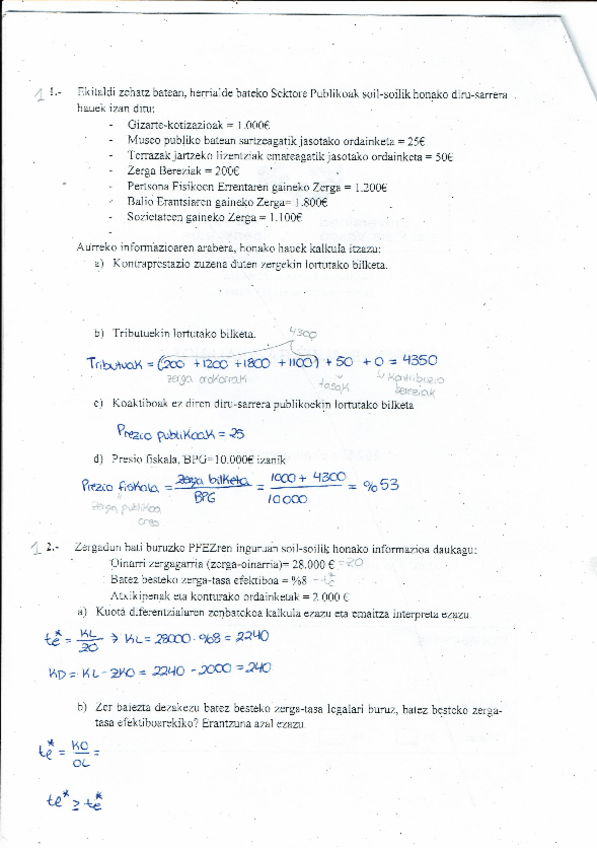 1 1.- Ekitaldi zehatz batean, herrialde bateko Sektore Publikoak soil-soilik honako diru-sarrera
hauek izan ditu:
- Gizarte-kotizazioak = 1.000€
- Museo publiko batean sartzeagatik jasotako ordainketa = 25€
- Terrazak jartzeko lizentziak emateagatik jasotako ordainketa = 50€
- Zerga Bereziak = 200€
- Pertsona Fisikoen Errentaren gaineko Zerga = 1.200€
- Balio Erantsiaren gaineko Zerga= 1.800€
- Sozietateen gaineko Zerga = 1.100€
-
Aurreko informazioaren arabera, honako hauek kalkula itzazu:
a) Kontraprestazio zuzena duten zergekin lortutako bilketa.
b) Tributuekin lortutako bilketa.
4300
Tributuak = (200 +1200 +1800 +1100) + 50 + 0 = 4350
zerga orokorrak tasak kontribuzio
bereziak
c) Koaktiboak ez diren diru-sarrera publikoekin lortutako bilketa
Prezio publikoak = 25
d) Presio fiskala, BPG=10.000€ izanik
Prezio fiskala = zerga bilketa / BPG = 1000 + 4300 / 10000 = %53
zerga publikoa
1 2.- Zergadun bati buruzko PFEZren inguruan soil-soilik honako informazioa daukagu:
Oinarri zergagarria (zerga-oinarria)= 28.000 € =ZO
Batez besteko zerga-tasa efektiboa = %8 - te*
Atxikipenak eta konturako ordainketak = 2.000 €
a) Kuota diferentzialaren zenbatekoa kalkula ezazu eta emaitza interpreta ezazu.
te* = KL / ZO → KL = 28000 · %8 = 2240
KD = KL - ZKO = 2240 - 2000 = 240
b) Zer baiezta dezakezu batez besteko zerga-tasa legalari buruz, batez besteko zerga-
tasa efektiboarekiko? Erantzuna azal ezazu.
te* = KO / OL =
te* ≥ te*